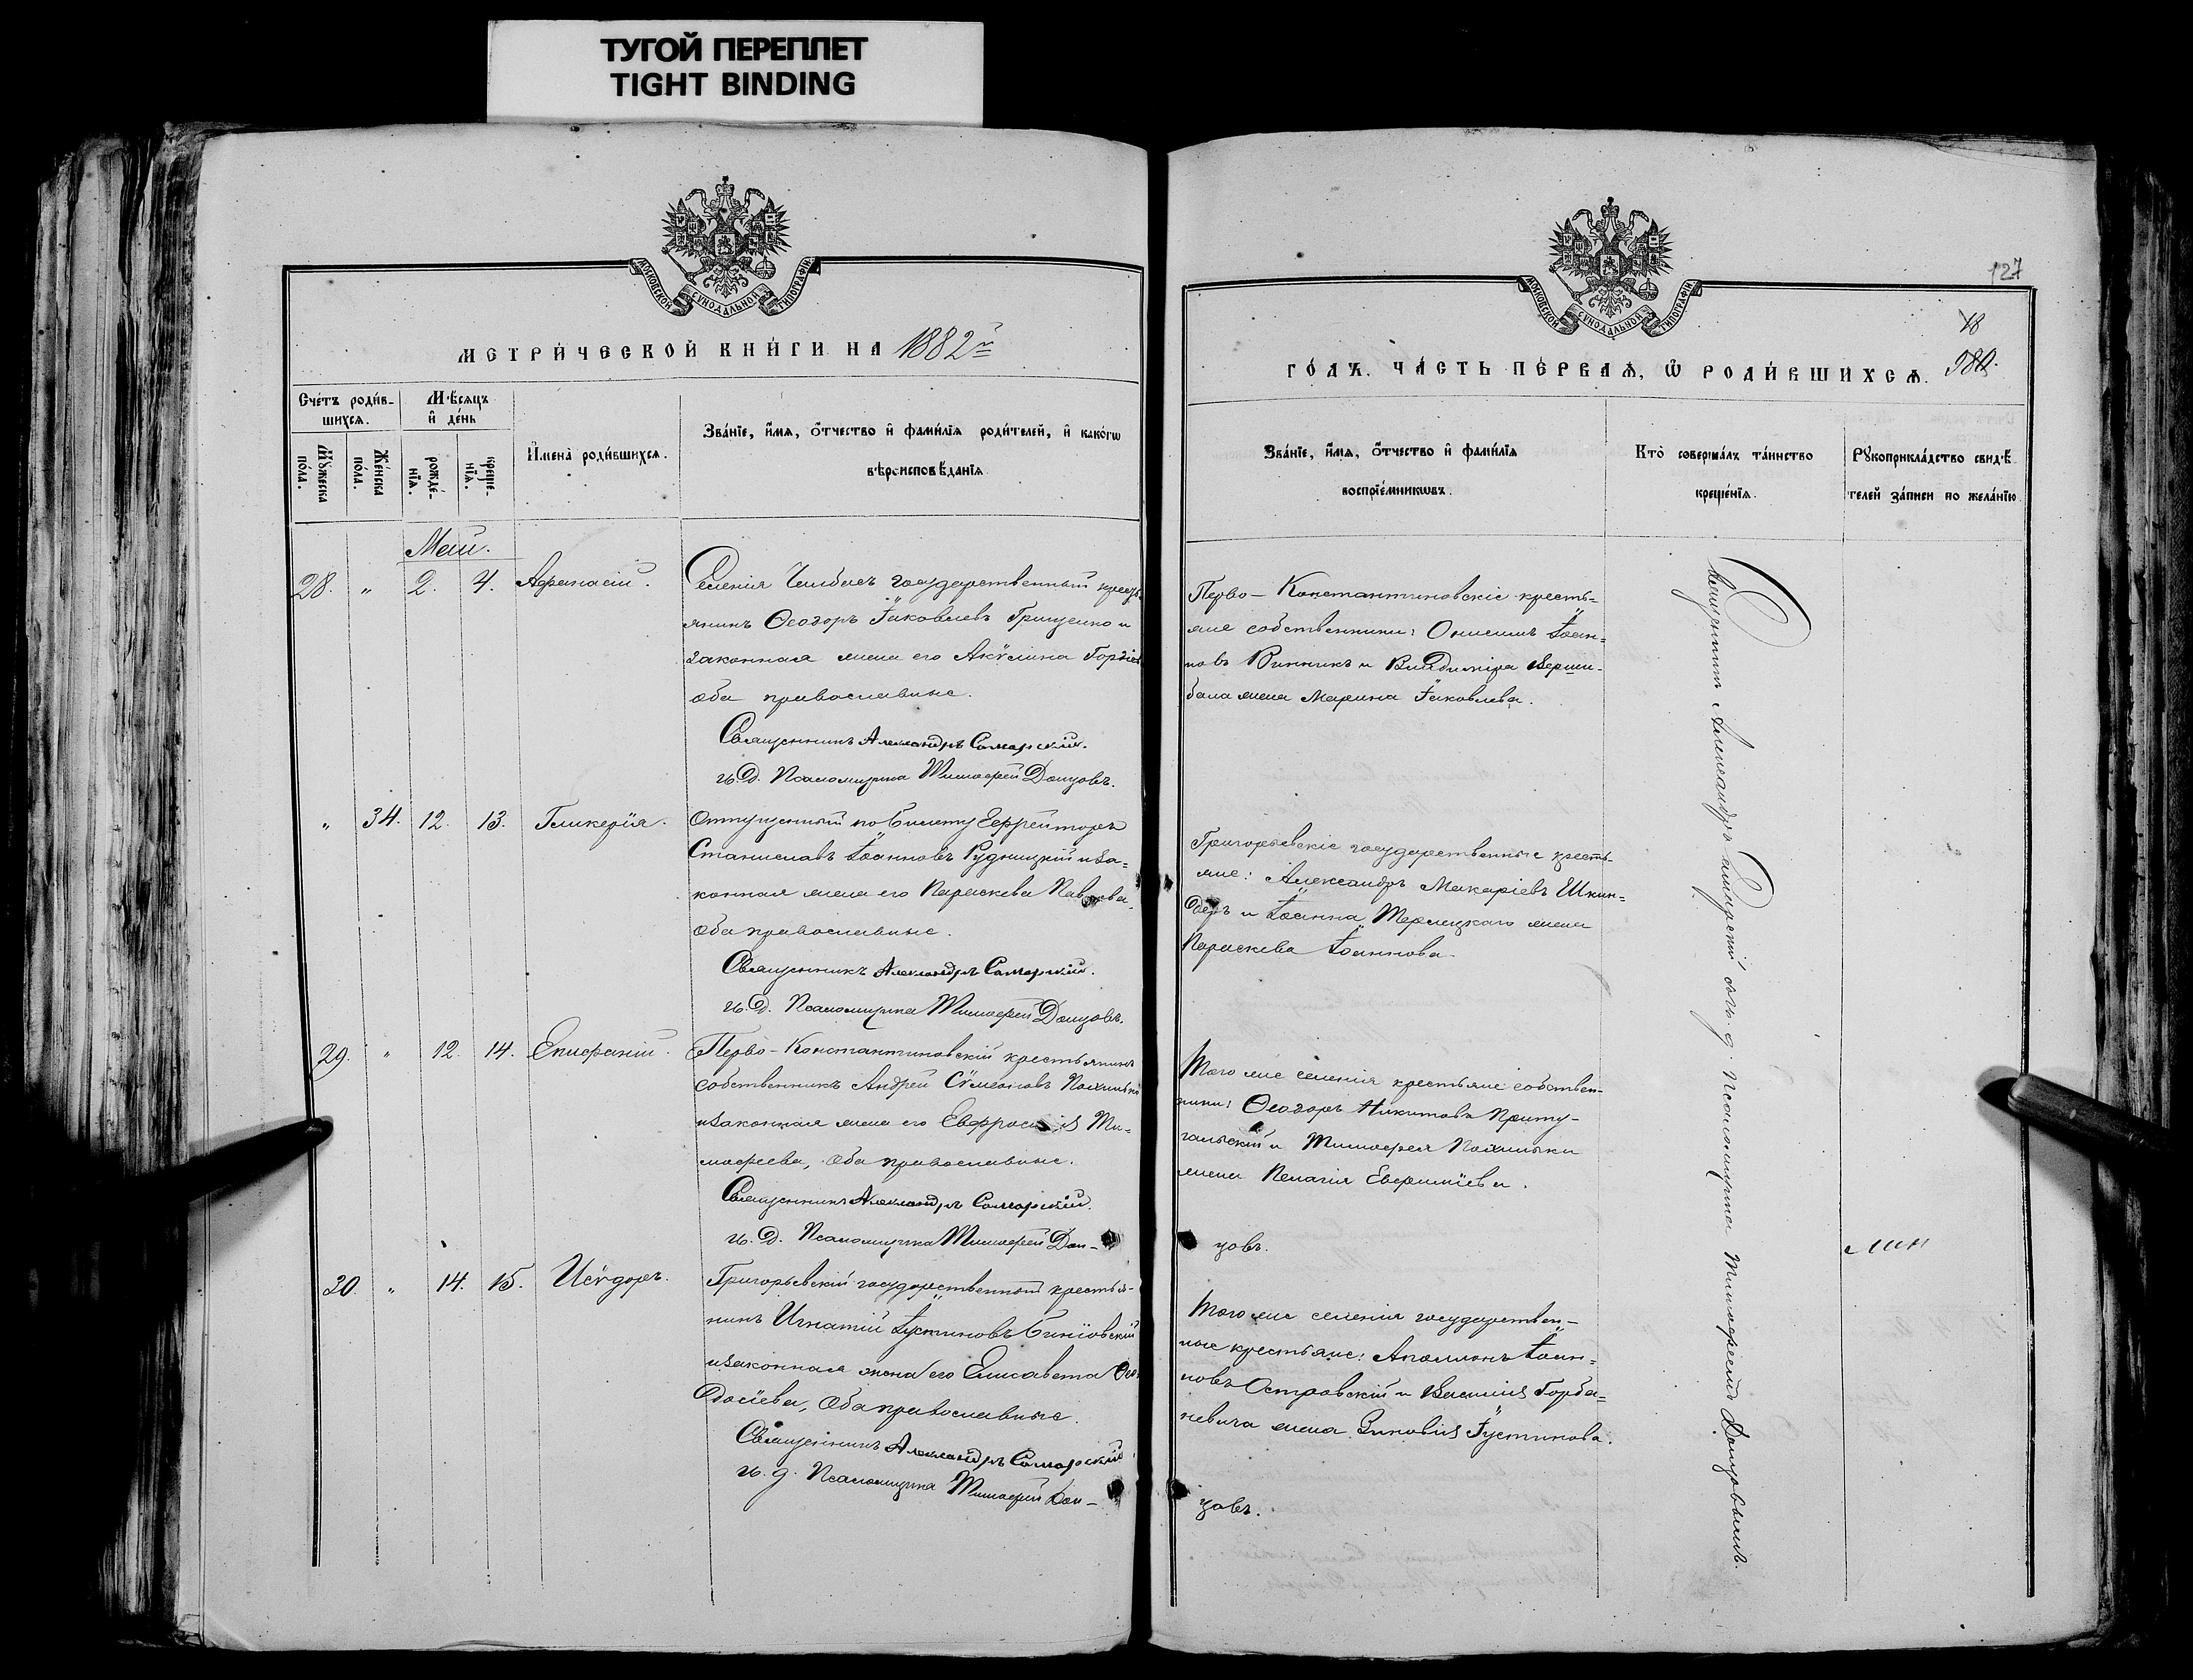 ТУГОЙ ПЕРЕПЛЕТ
TIGHT BINDING
МОСКОВСКОЙ СУНОДАЛЬНОЙ ТИПОГРАФІИ
МЕТРИ́ЧЕСКОЙ КНИ́ГИ НА 1882 г
Сче́тъ роди́в-
шихся.
Мѣ́сяцъ
и҆ де́нь
Мꙋ́жеска
по́ла.
Же́нска
по́ла.
рожде́-
нїѧ.
креще́-
нїѧ.
И҆мена̀ роди́вшихсѧ.
Зва́нїе, и҆́мѧ, ѻ҆́тчество и҆ фами́лїѧ роди́телей, и҆ како́гѡ
вѣроисповѣ́данїѧ
Май.
28. " 2. 4. Афанасій.
Селенія Чалбасъ государственный кресть
янинъ Ѳеодоръ Іаковлевъ Грищенко и
законная жена его Акѵлина Гордіев
оба православные.
Священникъ Александръ Самарскій.
и. д. Псаломщика Тимоѳей Донцовъ.
" 34. 12. 13. Гликерія.
Отпущенный по билету Ефрейторъ
Станиславъ Іоанновъ Рудницкій и за-
конная жена его Параскева Павлова,
оба православные.
Священникъ Александръ Самарскій.
и. д. Псаломщика Тимоѳей Донцовъ.
29. " 12. 14. Епифаній.
Перво-Константиновскій крестьянинъ
собственникъ Андрей Сѵмеоновъ
и законная жена его Евфросинія Ти-
моѳеева, оба православные.
Священникъ Александръ Самарскій.
и. д. Псаломщика Тимоѳей Дон-
30. " 14. 15. Исѵдоръ.
Григорьевскій государственный крестья-
нинъ Игнатій Іустиновъ
и законная жена его Елисавета Ѳео
досіева, оба православные.
Священникъ Александръ Самарскій
и. д. Псаломщика Тимоѳей Дон-
127
МОСКОВСКОЙ СУНОДАЛЬНОЙ ТИПОГРАФІИ
18
980.
ГО́ДЪ. ЧА́СТЬ ПЕ́РВАѦ, Ѡ҆ РОДИ́ВШИХСѦ.
Зва́нїе, и҆́мѧ, ѻ҆́тчество и҆ фами́лїѧ
воспрїе́мникѡвъ.
Кто̀ соверша́лъ та́инство
креще́нїѧ.
Рꙋкоприкла́дство свидѣ́
телей за́писи по жела́нїю
Перво-Константиновскіе кресть-
яне собственники: Онисимъ Іоан-
новъ Винникъ и Владиміра Верши-
бала жена Марина Іаковлева.
Григорьевскіе государственные кресть-
яне: Александръ Макаріевъ Шкин-
деръ и Іоанна Терлецкаго жена
Параскева Іоаннова.
Того же селенія крестьяне собствен-
ники: Ѳеодоръ Никитовъ Приту-
гальскій и Тимоѳея
жена Пелагія
цовъ.
Того же селенія государствен-
ные крестьяне: Аполлонъ Іоан-
новъ Островскій и Василія Горба-
невича жена Зиновія Іустинова.
цовъ.
Священникъ Александръ Самарскій съ и. д. Псаломщика Тимоѳеемъ Донцовымъ.